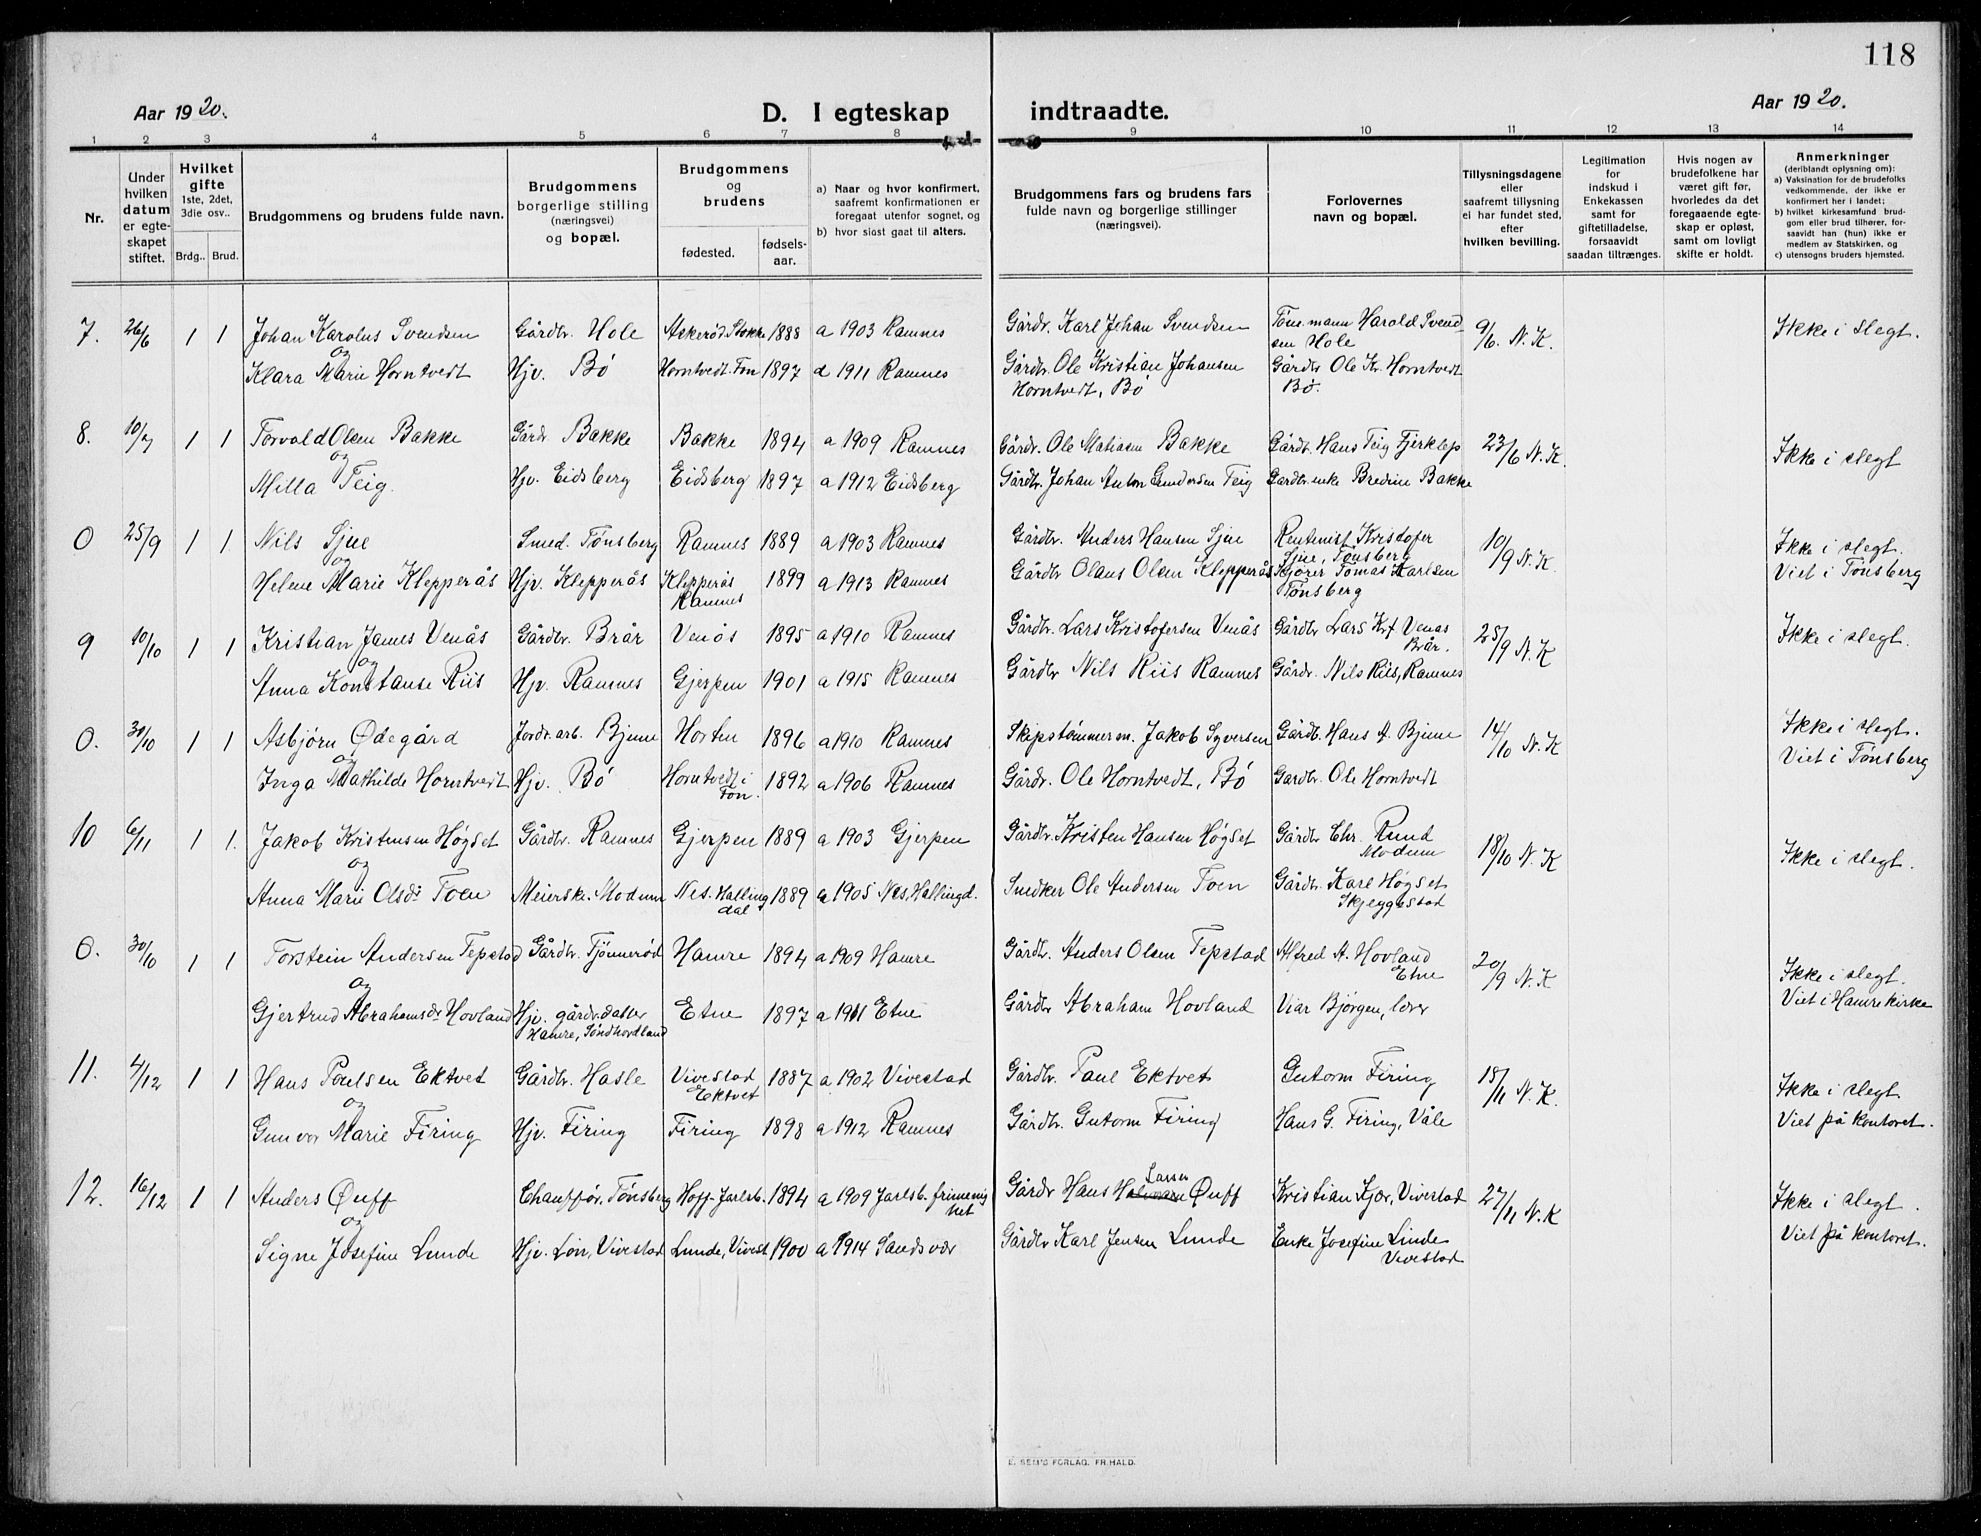 118
Aar 1920.
D. I egteskap indtraadte.
Aar 1920.
1 2 3 4 5 6 7 8 9 10 11 12 13 14
Nr.
Under hvilken datum er egteskapet stiftet.
Hvilket gifte 1ste, 2det, 3die osv..
Brdg.. Brud.
Brudgommens og brudens fulde navn.
Brudgommens borgerlige stilling (næringsvei) og bopæl.
Brudgommens og brudens
fødested. fødselsaar.
a) Naar og hvor konfirmert, saafremt konfirmationen er foregaat utenfor sognet, og
b) hvor sidst gaat til alters.
Brudgommens fars og brudens fars fulde navn og borgerlige stillinger (næringsvei).
Forlovernes navn og bopæl.
Tillysningsdagene eller saafremt tillysning ei har fundet sted, efter hvilken bevilling.
Legitimation for indskud i Enkekassen samt for giftetilladelse, forsaavidt saadan tiltrænges.
Hvis nogen av brudefolkene har været gift før, hvorledes da det foregaaende egteskap er opløst, samt om lovligt skifte er holdt.
Anmerkninger (deriblandt oplysning om):
a) Vaksination for de brudefolks vedkommende, der ikke er konfirmert her i landet;
b) hvilket kirkesamfund brudgom eller brud tilhører, forsaavidt han (hun) ikke er medlem av Statskirken, og
c) utensogns bruders hjemsted.
7. 26/6 1 1 Johan Karolus Svendsen Gårdbr. Hole Askerød Stokke 1888 a 1903 Ramnes Gårdr. Karl Johan Svendsen Tøm.mann Harold Svendsen Hole 9/6. N. K. Ikke i slegt.
og
Klara Marie Horntvedt Hjv. Bö Horntvedt. Fon 1897 d 1911 Ramnes Gårdr. Ole Kristian Johansen Horntvedt, Bö Gårdbr Ole Kr. Horntvedt Bö.
8. 10/7 1 1 Torvald Olsen Bakke Gårdr Bakke Bakke 1894 a 1909 Ramnes Gårdr. Ole Matiasen Bakke Gårdbr. Hans Teig Fjerklep 23/6 N. K. Ikke i slegt
og
Milla Teig. Hjv. Eidsberg Eidsberg 1897 a 1912 Eidsberg Gårdbr. Johan Anton Gundersen Teig Gardbr.enke Bredine Bakke
0 25/9 1 1 Nils Sjue Smed. Tønsberg Ramnes 1889 a 1903 Ramnes Gårdbr. Anders Hansen Sjue Rentenist Kristofer Sjue, Tønsberg 10/9 N. K. Ikke i slegt. Viet i Tønsberg
og
Helene Marie Klepperås Hjv. Klepperås Klepperås Ramnes 1899 a 1913 Ramnes Gårdbr Olaus Olsen Klepperås Skjörer Tomas Karlsen Tønsberg
9 10/10 1 1 Kristian James Venås Gårdbr. Brår Venås 1895 a 1910 Ramnes Gårdbr. Lars Kristofersen Venås Gårdbr Lars Krf Venas Brår. 25/9 N. K Ikke i slegt.
og
Anna Konstanse Riis Hjv. Ramnes Gjerpen 1901 a 1915 Ramnes Gårdbr Nils Riis Ramnes Gårdr. Nils Riis, Ramnes
0. 30/10 1 1 Asbjørn Ødegård Jordr.arb. Bjune Horten 1896 a 1910 Ramnes Skipstømmerm. Jakob Syversen Gårdb. Hans A. Bjune 14/10 N. K Ikke i slegt. Viet i Tønsberg
og
Inga Mathilde Horntvedt Hjv. Bö Horntvedt i Fon. 1892 a 1906 Ramnes Gårdr. Ole Horntvedt, Bö Gardbr. Ole Horntvedt
10 6/11 1 1. Jakob Kristensen Høgset Gårdbr. Ramnes Gjerpen 1889 a 1903 Gjerpen Gårdbr. Kristen Hansen Høgset Gårdbr Chr. Rund Modum 18/10 N. K Ikke i slegt.
og
Anna Marie Olsdr Toen Meierske. Modum Nes. Hallingdal 1889 a 1905 Nes, Hallingd. Snedker Ole Andersen Toen Gårdbr. Karl Høgset Skjeggestad
0. 30/10 1 1 Torstein Andersen Tepstad Gårdbr. Tjønnerød Hamre 1894 a 1909 Hamre Gårdbr. Anders Olsen Tepstad Alfred A. Hovland Etne 20/9 N. K Ikke i slegt. Viet i Hamre kirke
og
Gjertrud Abrahamsdr Hovland Hjv. gårdr.datter Hamre, Søndhordland Etne 1897 a 1911 Etne Gårdbr Abraham Hovland Viar Bjørgen, lærer
11. 4/12 1 1 Hans Poulsen Ektvet Gårdbr. Hasle Vivestad Ektvet 1887 a 1902 Vivestad Gårdbr. Paul Ektvet Gutorm Firing 18/11 N. K. Ikke i slegt. Viet på kontoret.
og
Gunvor Marie Firing Hjv. Firing Firing 1898 a 1912 Ramnes Gårdbr. Gutorm Firing Hans G. Firing, Våle
12. 16/12 1 1 Anders Øuff Chauffør. Tønsberg Hoff Jarlsb. 1894 a 1909 Jarlsb. frimenighet Gårdr Hans Larsen Øuff Kristian Kjær, Vivestad 27/11 N. K Ikke i slegt. Viet på kontoret.
og
Signe Josefine Lunde Hjv. Lon, Vivestad Lunde, Vivest 1900 a 1914 Sandsvær Gårdbr Karl Jensen Lunde Enke Josefine Linde Vivestad
E. SEM'S FORLAG. FR. HALD.